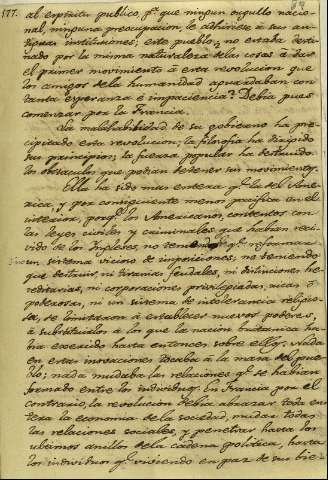 177.
al espíritu publico, pª que ningun orgullo nacio-
nal, ninguna preocupacion, le adhiriese á sus an-
tiguas instituciones; este pueblo, no estaba desti-
nado por la misma naturaleza de las cosas á dar
el primer movimiento á esta revolucion que
los amigos de la humanidad aguardaban con
tanta esperanza é impaciencia? Debia pues
comenzar por la Francia.
La malhabilidad de su gobierno ha pre-
cipitado esta revolucion; la filosofia ha dirigido
sus principios; la fuerza popular ha destruido
los obstaculos que podian detener sus movimientos.
Ella ha sido mas entera qᵉ la del Ame-
rica, y por consiguiente menos pacifica en el
interior, porqᵉ los Americanos, contentos con
las leyes civiles y criminales que habian reci-
vido de los Ingleses, no teniendo qᵉ reformar
un sistema vicioso de imposiciones, no teniendo
que destruir, ni tiranias feudales, ni distinciones he-
reditarias, ni corporaciones privilegiadas, ricas ó
poderosas, ni un sistema de intolerancia religio-
sa, se limitaron á establecer nuevos poderes,
á substituirlos á los que la nacion britanica ha-
bia exercido hasta entonces sobre ellos. Nada
en estas inovaciones tocaba á la masa del pue-
blo; nada mudaba las relaciones qᵉ se habian
formado entre los individuos. En Francia por el
contrario, la revolucion debia abrazar toda en-
tera la economia de la sociedad, mudar todas
las relaciones sociales, y penetrar hasta los
ultimos anillos de la cadena politica, hasta
los individuos qᵉ viviendo en paz de sus bie-